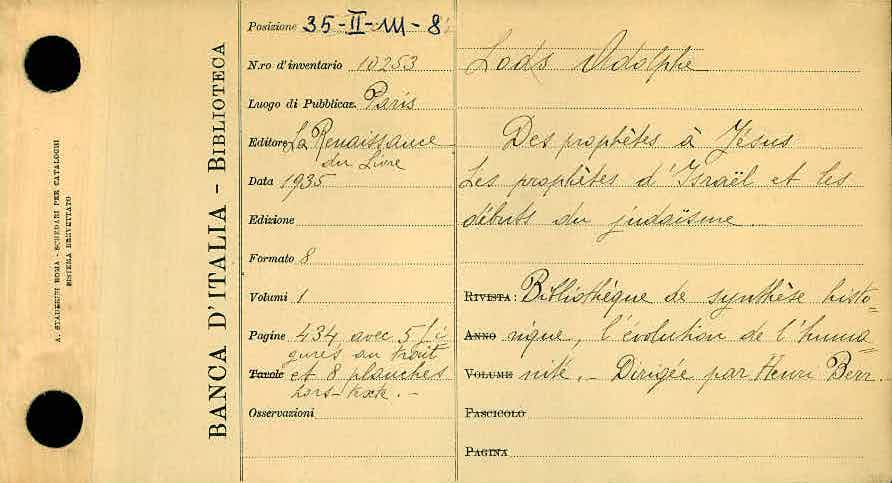 A. STADERINI ROMA - SCHEDARI PER CATALOGHI
SISTEMA BREVETTATO
BANCA D'ITALIA - BIBLIOTECA
Posizione 35-II-III-8
N.ro d'inventario 10253
Luogo di Pubblicaz. Paris
Editore La Renaissance
du Livre
Data 1935
Edizione
Formato 8
Volumi 1
Pagine 434 avec 5 fi
gures au trait
Tavole et 8 planches
hors-texte.-
Osservazioni
Lods Adolphe
Des prophètes à Jésus
Les prophètes d'Israël et les
débuts du judaïsme
RIVISTA: Bibliothèque de synthèse histo=
ANNO rique, l'évolution de l'huma=
VOLUME nité.- Dirigée par Henri Berr.-
FASCICOLO
PAGINA